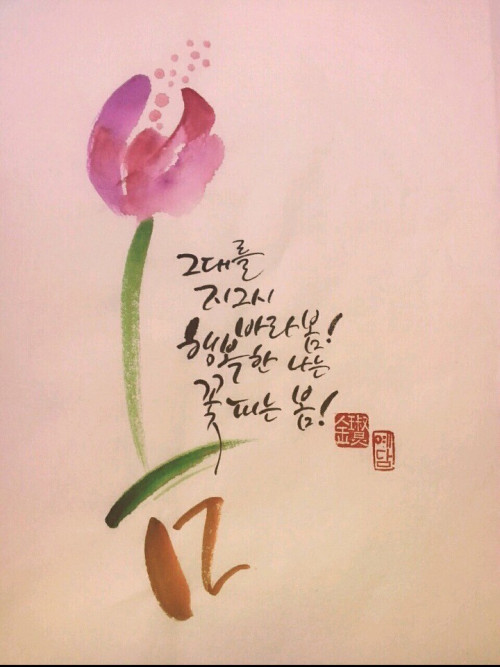 그대를
지그시
바라봄!
행복한 나는
꽃 피는 봄!
예담